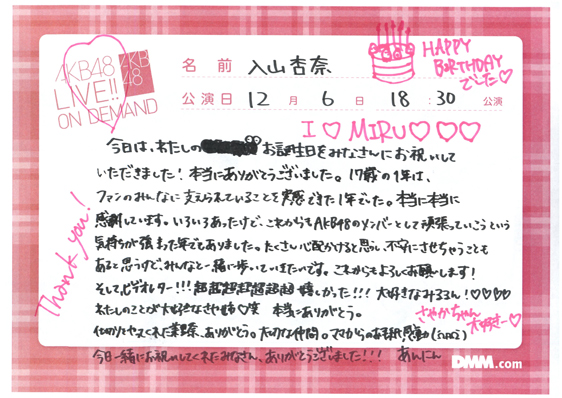 AKB48
LIVE!!
ON DEMAND
AKB
48
名前 入山杏奈
HAPPY
BIRTHDAY
でした♡
公演日 12月6日 18:30公演
I ♡ MIRU♡♡♡
今日は、わたしの お誕生日をみなさんにお祝いして
いただきました!本当にありがとうございました。17歳の1年は、
ファンのみんなに支えられていることを実感できた1年でした。本当に本当に
感謝しています。いろいろあったけど、これからもAKB48のメンバーとして頑張っていこうという
気持ちが強まった年でもありました。たくさん心配かけると思うし、不安にさせちゃうことも
あると思うけど、みんなと一緒に歩いていきたいです。これからもよろしくお願いします!
そして、ビデオレター!!!超超超超超超嬉しかった!!!大好きなみるるん!♡♡♡♡
わたしのことが大好きなさや姉♡笑 本当にありがとう。
さやかちゃん
大好きー♡
ありがとう。大切な仲間。ママからのお手紙感動
今日一緒にお祝いしてくれたみなさん、ありがとうございました!!! あんにん
Thank you!
DMM.com